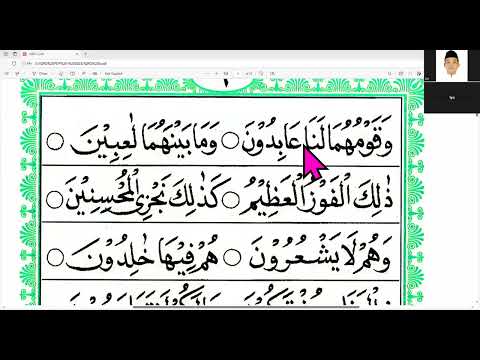 وَقَوْمُهُمَا لَنَا عَابِدُوْنَ ○ وَمَا بَيْنَهُمَا لٰعِبِيْنَ ○
ذٰلِكَ الْفَوْزُ الْعَظِيْمُ ○ كَذٰلِكَ نَجْزِي الْمُحْسِنِيْنَ ○
وَهُمْ لَا يَشْعُرُوْنَ ○ هُمْ فِيْهَا خٰلِدُوْنَ ○